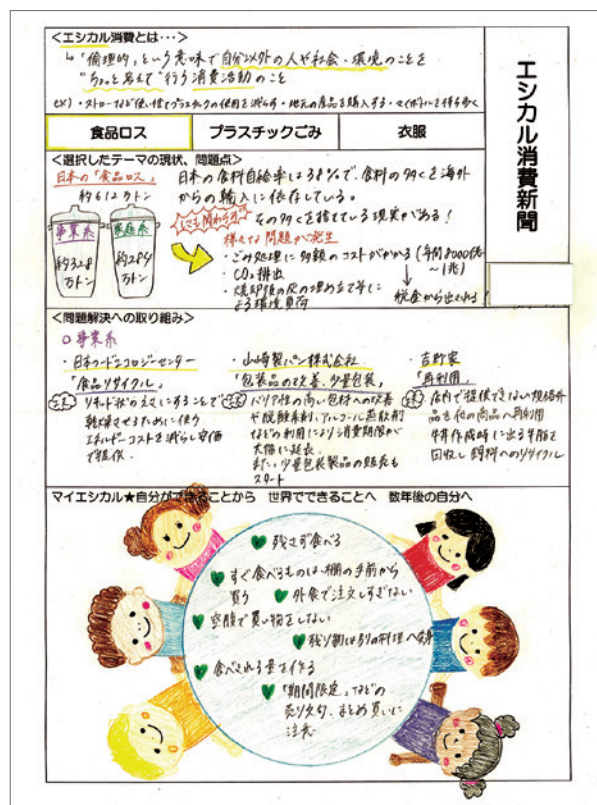 エシカル消費新聞
<エシカル消費とは・・・>
↳「倫理的」という意味で自分以外の人や社会・環境のことを
"ちょっと考えて"行う消費活動のこと
ex)・ストローなど使い捨てプラスチックの使用を減らす・地元の産品を購入する・マイボトルを持ち歩く
食品ロス
プラスチックごみ
衣服
<選択したテーマの現状、問題点>
日本の「食品ロス」
約612万トン
事業系
約328
万トン
家庭系
約284
万トン
日本の食料自給率は38%で、食料の多くを海外
からの輸入に依存している。
にも関わらず
その多くを捨てている現実がある!
様々な問題が発生
・ごみ処理に多額のコストがかかる(年間8000億
~1兆)
・CO₂排出
・焼却後の灰の埋め立て等に
よる環境負荷
税金から出される!
<問題解決への取り組み>
○事業系
・日本フードエコロジーセンター
「食品リサイクル」
リキッド状のえさにすることで
乾燥させるために使う
エネルギーコストを減らし安価
で提供。
・山崎製パン株式会社
「包装品の改善、少量包装」
バリア性の高い包材への改善
や脱酸素剤、アルコール蒸散剤
などの利用により消費期限が
大幅に延長。
また、少量包装製品の販売も
スタート
・吉野家
「再利用」
店内で提供できない規格外
品を他の商品へ再利用
牛丼作成時に出る牛脂を
回収し飼料へのリサイクル
マイエシカル★自分ができることから 世界でできることへ 数年後の自分へ
残さず食べる
すぐ食べるものは、棚の手前から
買う
外食で注文しすぎない
空腹で買い物をしない
残り物は別の料理へ変身
食べきれる量を作る
「期間限定」などの
売り文句、まとめ買いに
注意